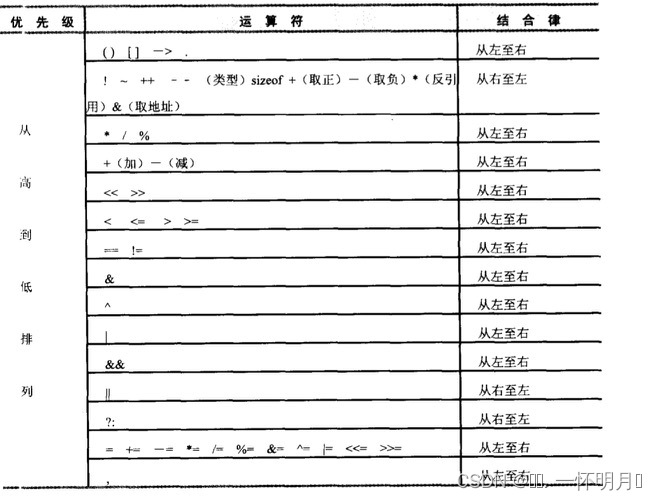 优先级 运算符 结合律
() [] —> . 从左至右
! ~ ++ -- （类型）sizeof +（取正）—（取负）*（反引 从右至左
用）&（取地址）
从 * / % 从左至右
+（加）—（减） 从左至右
高 << >> 从左至右
< <= > >= 从左至右
到 == != 从左至右
& 从左至右
低 ^ 从左至右
| 从左至右
排 && 从左至右
列 || 从右至左
?: 从右至左
= += —= *= /= %= &= ^= |= <<= >>= 从左至右
, 从左至右
CSDN @ 一怀明月